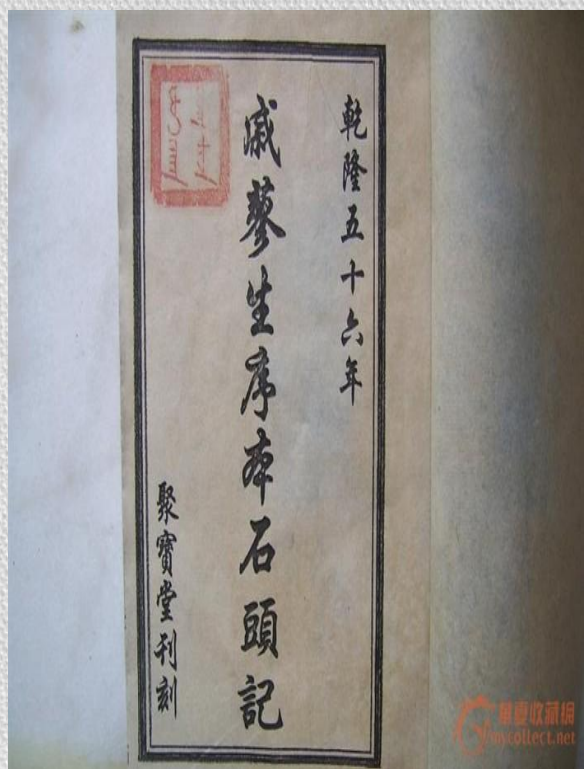 乾隆五十六年
戚蓼生序本石頭記
聚寳堂刊刻
華夏收藏網
mycollect.net